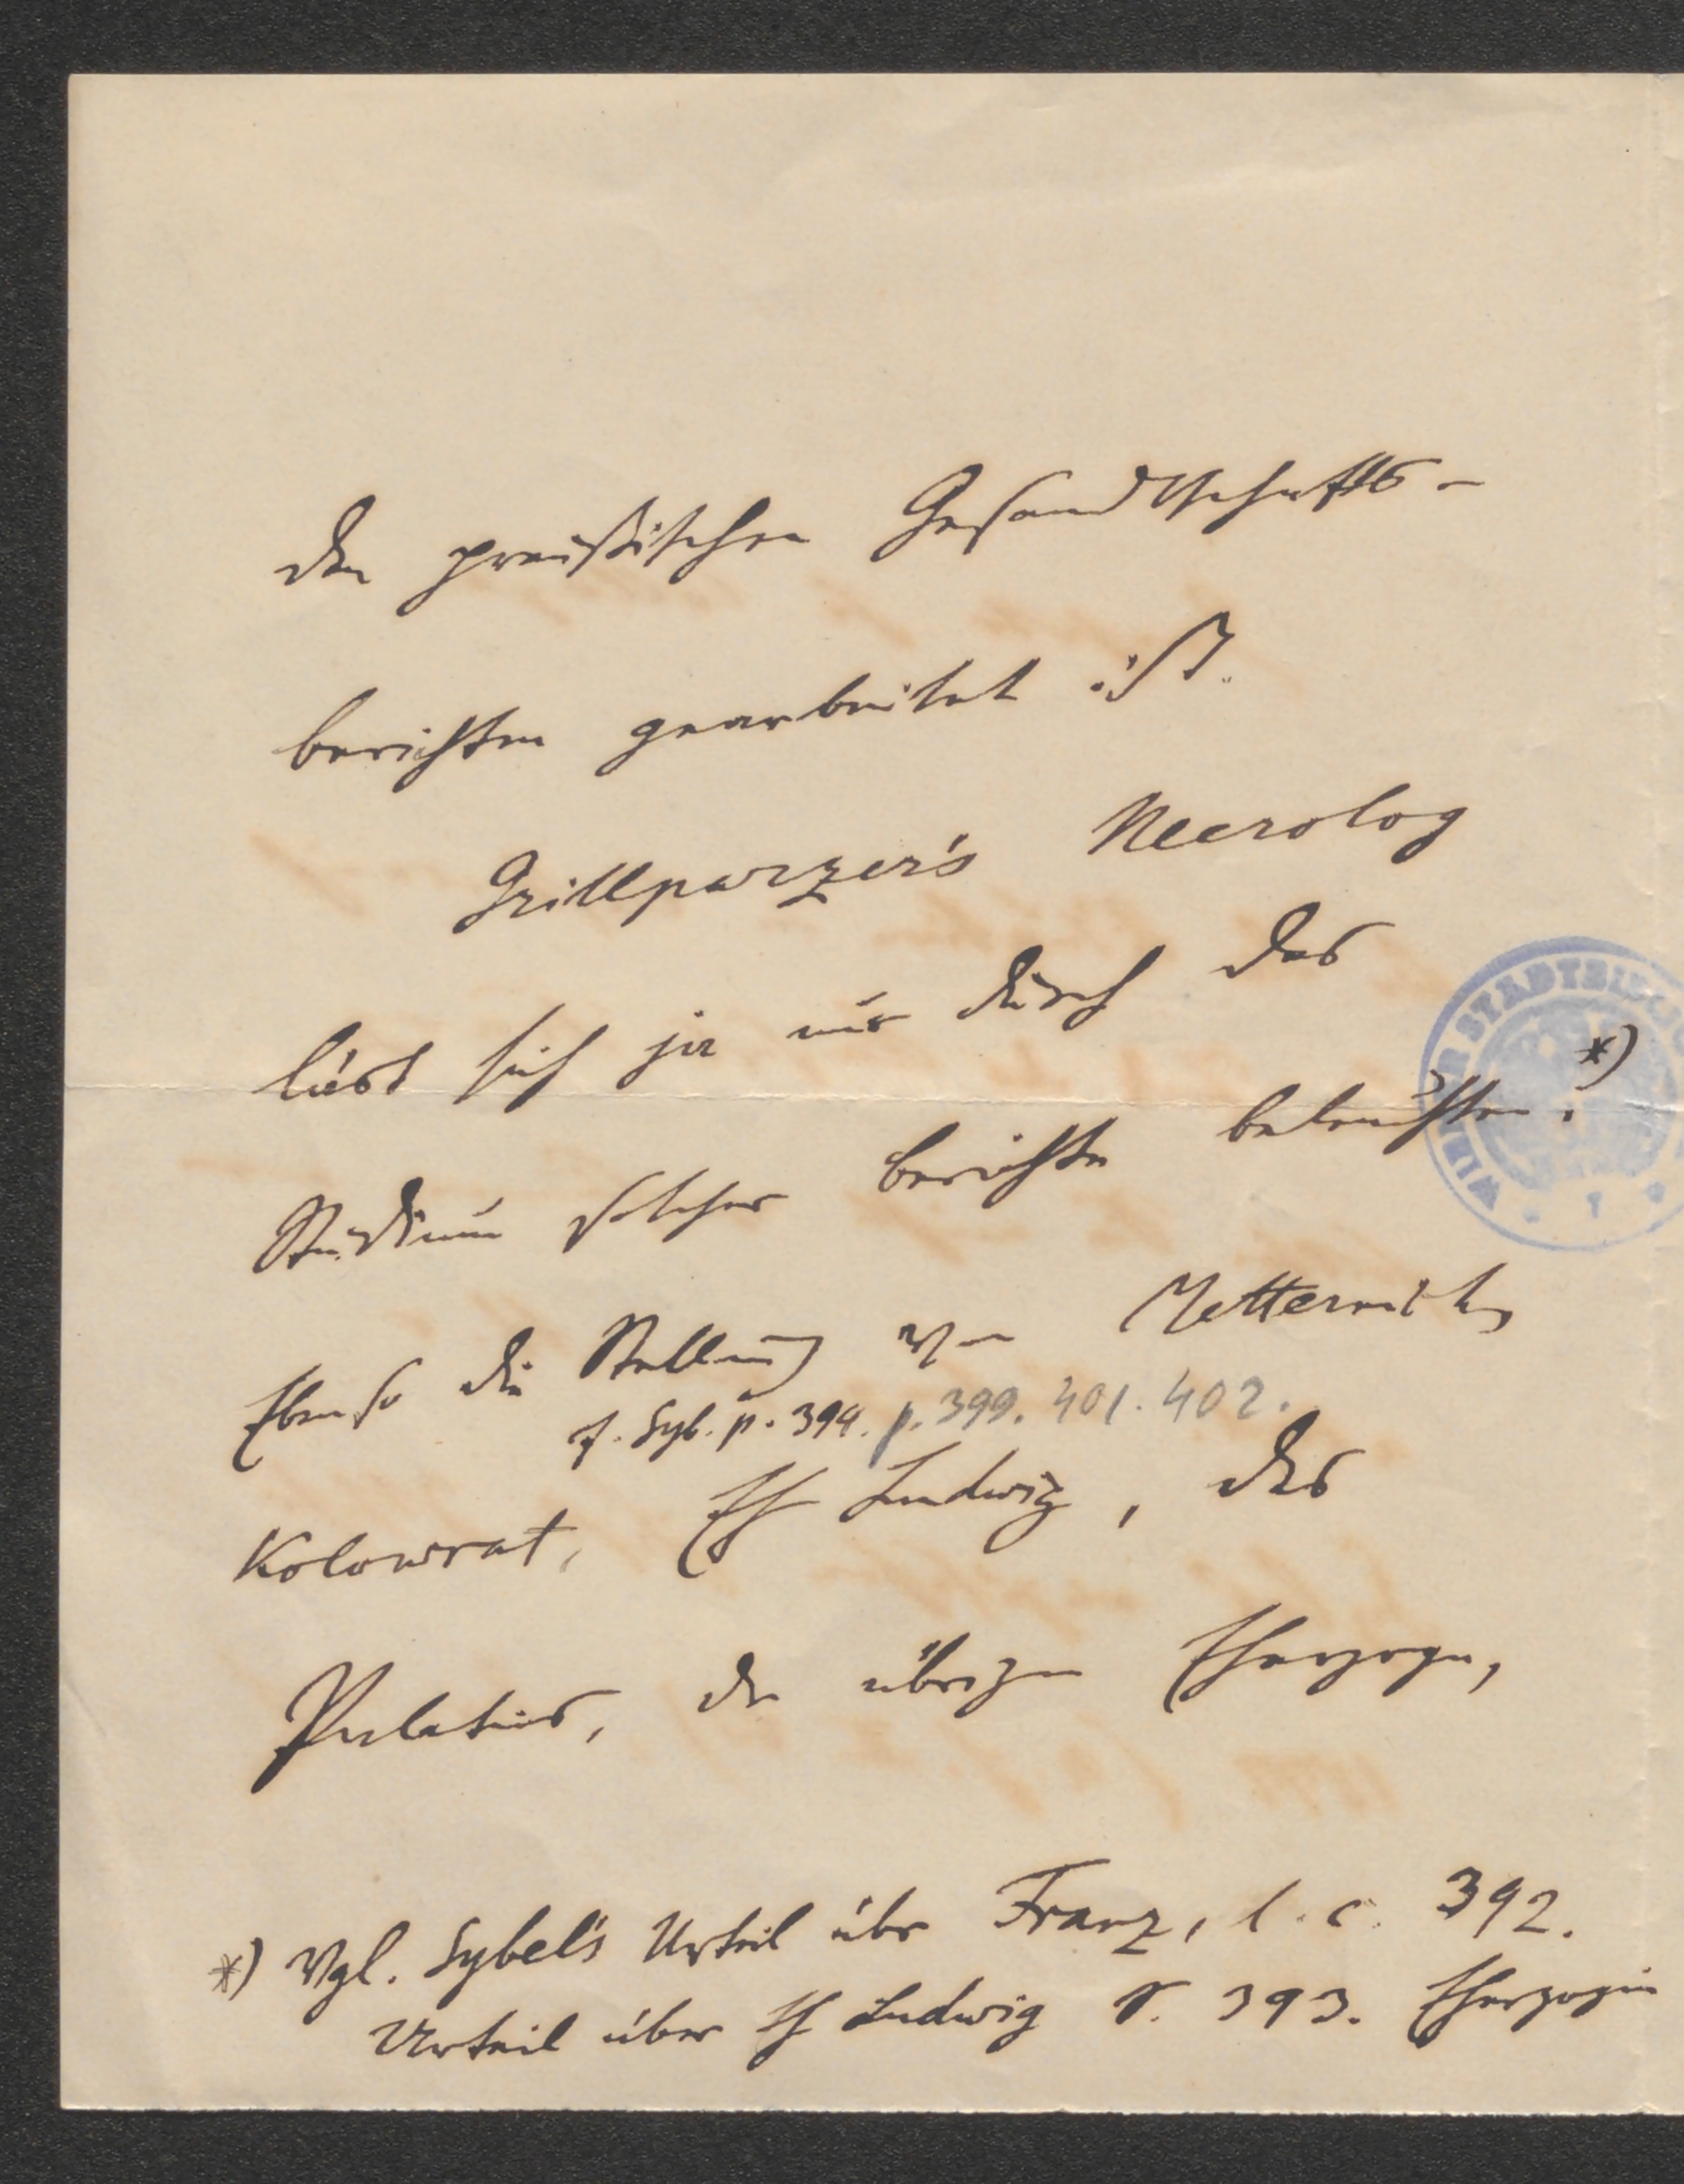 den preußischen Gesandtschafts-
berichten gearbeitet ist.
Grillparzer's Necrolog
lässt sich ja nur durch das
Studium solcher Berichte beleuchten.*)
Ebenso die Stellung von Metternich,
cf. Syb. p. 394. p. 399. 401. 402.
Kolowrat, Eh Ludwig, des
Palatins, der übrigen Eherzoge,
*) Vgl. Sybel's Urteil über Franz, l. c. 392.
Urteil über Eh Ludwig S. 393. Eherzogin
WIENER STADTBIBLIO